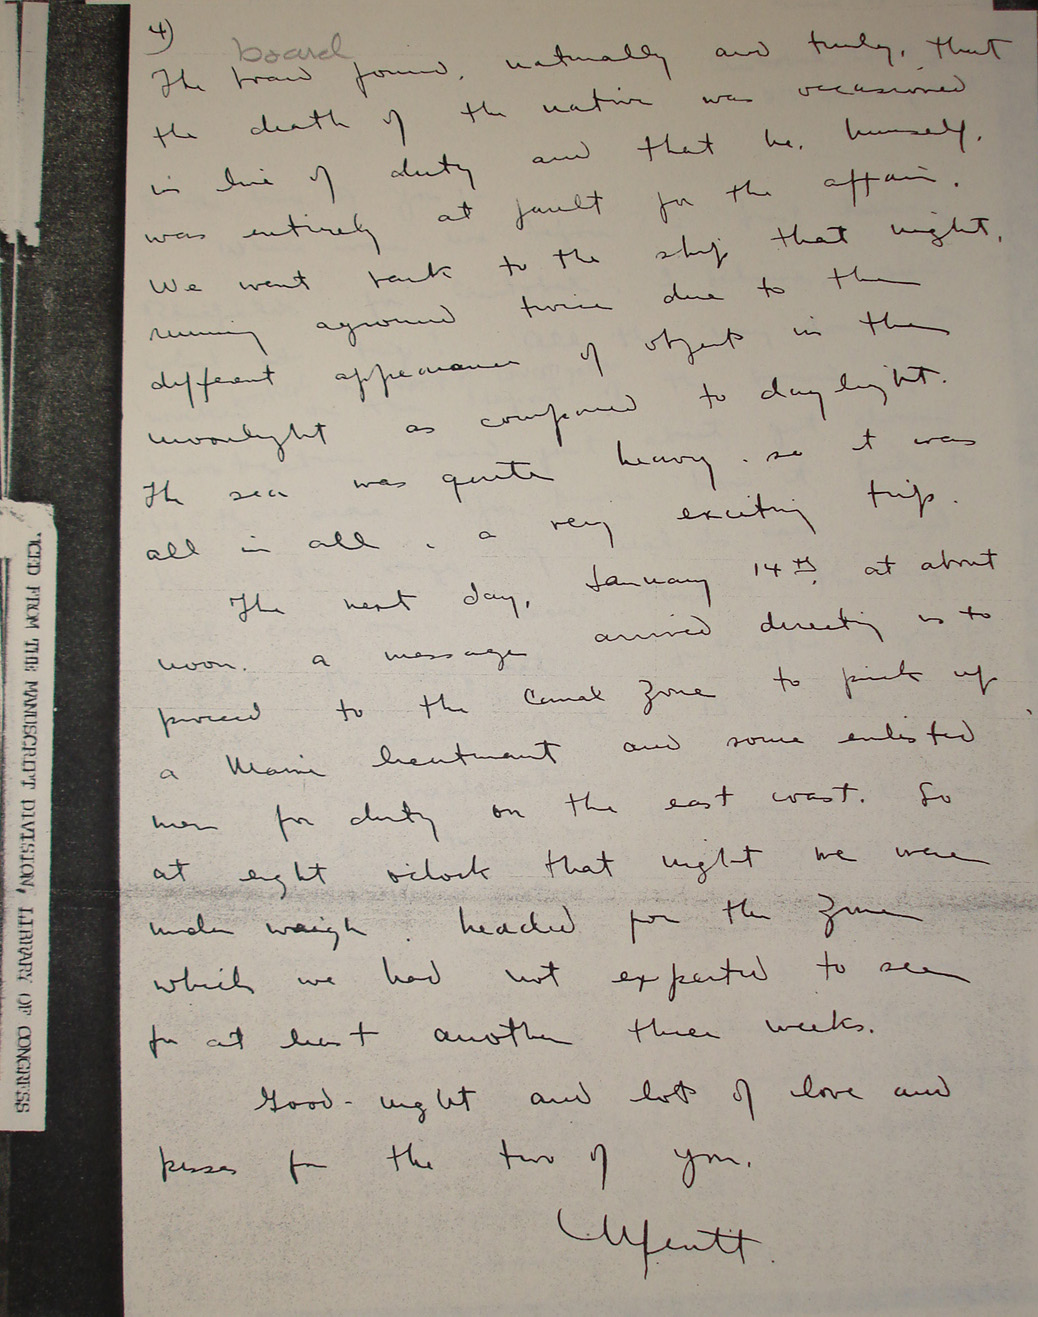 4)
board
The board found, naturally and truly, that
the death of the native was occasioned
in line of duty and that he, himself,
was entirely at fault for the affair.
We went back to the ship that night,
running aground twice due to the
different appearance of objects in the
moonlight as compared to daylight.
The sea was quite heavy. so it was
all in all, a very exciting trip.
The next day, January 14th, at about
noon, a message arrived directing us to
proceed to the Canal Zone to pick up
a Marine lieutenant and some enlisted
men for duty on the east coast. So
at eight o'clock that night we were
under weigh, headed for the Zone
which we had not expected to see
for at least another three weeks.
Good-night and lots of love and
kisses for the two of you.
"ICED FROM THE MANUSCRIPT DIVISION, LIBRARY OF CONGRESS